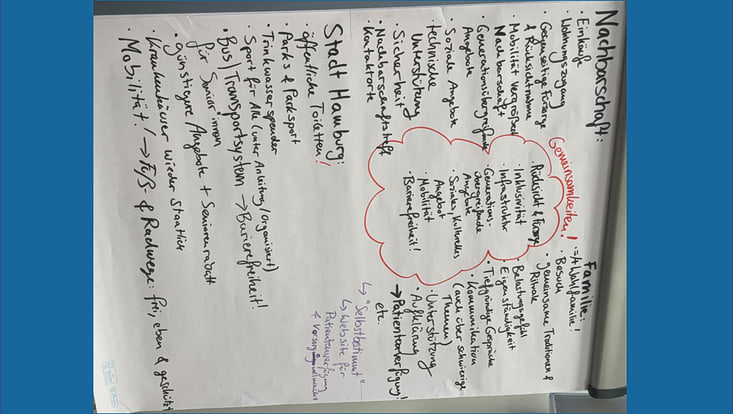 Nachbarschaft:
· Einkäufe
· Wohnungszugang
· Gegenseitige Fürsorge
& Rücksichtnahme
· Mobilität vergrößert
Nachbarschaft
· Generationsübergreifende
Angebote
· Soziale Angebote
· technische
Unterstützung
· Sicherheit
· Nachbarschaftstreff
Kontaktorte
Gemeinsamkeiten!
· Rücksicht & Fürsorge
· Inklusivität
· Infrastruktur
· Generations-
übergreifende
Angebote
· Soziales, kulturelles
Angebot
· Mobilität
· Barrierefreiheit!
Familie:
· Wahlfamilie!
· Besuch
· gemeinsame Traditionen &
Rituale
· Belastungsgefühl
· Eigenständigkeit
· Tiefgründige Gespräche
· Kommunikation
(auch über schwierige
Themen)
· Unterstützung
· Aufklärung
→ Patientenverfügung!
etc.
↳ "Selbstbestimmt"
↳ Website für
Patientenverfügung
& Vorsorgevollmacht
Stadt Hamburg:
· öffentliche Toiletten!
· Parks & Parksport
· Trinkwasserspender
· Sport für Alle (unter Anleitung/organisiert)
· Bus/Transportsystem → Barrierefreiheit!
für Senior*innen
· günstigere Angebote + Seniorenrabatt
· Krankenhäuser wieder staatlich
· Mobilität! → Fuß- & Radwege: frei, eben & geschützt